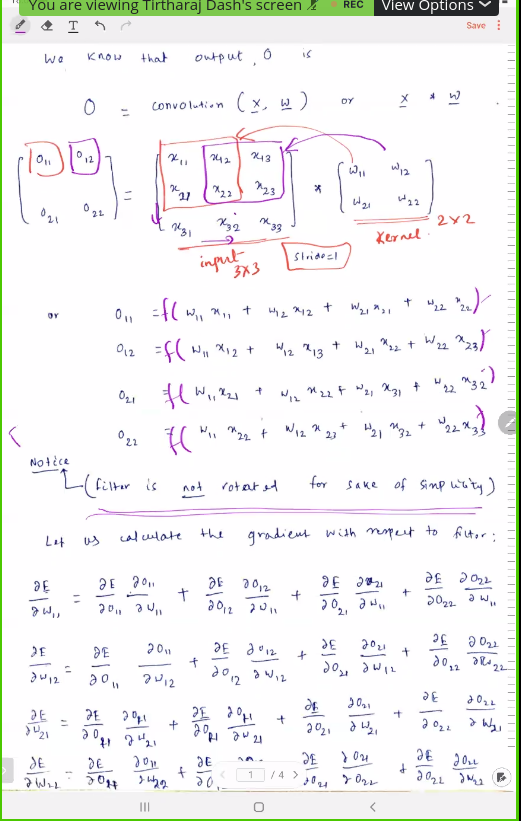 You are viewing Tirtharaj Dash's screen REC View Options
T Save
We know that output, O is
O = convolution (x, w) or x * w.
O11 O12 = x11 x12 x13 * w11 w12
O21 O22 x21 x22 x23 w21 w22
x31 x32 x33
input 3x3 stride=1 Kernel. 2x2
or O11 = f( w11 x11 + w12 x12 + w21 x21 + w22 x22)
O12 = f( w11 x12 + w12 x13 + w21 x22 + w22 x23)
O21 = f( w11 x21 + w12 x22 + w21 x31 + w22 x32)
O22 = f( w11 x22 + w12 x23 + w21 x32 + w22 x33)
Notice
(filter is not rotated for sake of simplicity)
Let us calculate the gradient with respect to filter:
∂E/∂w11 = ∂E/∂O11 ∂O11/∂w11 + ∂E/∂O12 ∂O12/∂w11 + ∂E/∂O21 ∂O21/∂w11 + ∂E/∂O22 ∂O22/∂w11
∂E/∂w12 = ∂E/∂O11 ∂O11/∂w12 + ∂E/∂O12 ∂O12/∂w12 + ∂E/∂O21 ∂O21/∂w12 + ∂E/∂O22 ∂O22
∂E/∂w21 = ∂E ∂w21 + ∂E ∂w21 + ∂E/∂O21 ∂O21/∂w21 + ∂E/∂O22 ∂O22/∂w21
∂E/∂w22 = ∂E ∂O11/∂w22 + ∂E ∂E/∂O21 ∂O21/∂O22 + ∂E/∂O22 ∂O22/∂w22
1 / 4